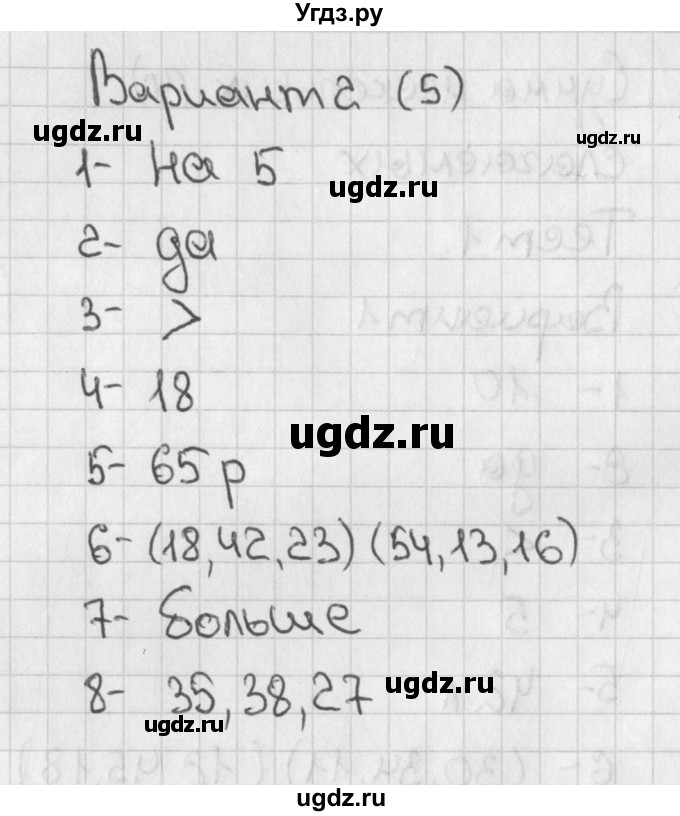 Угдз.ру
Вариант 2 (5)
ugdz.ru
ugdz.ru
1- на 5
ugdz.ru
2- да
3- >
4- 18
ugdz.ru
5- 65 р
6- (18,42,23) (54,13,16)
7- больше
8- 35,38,27
ugdz.ru
ugdz.ru
ugdz.ru